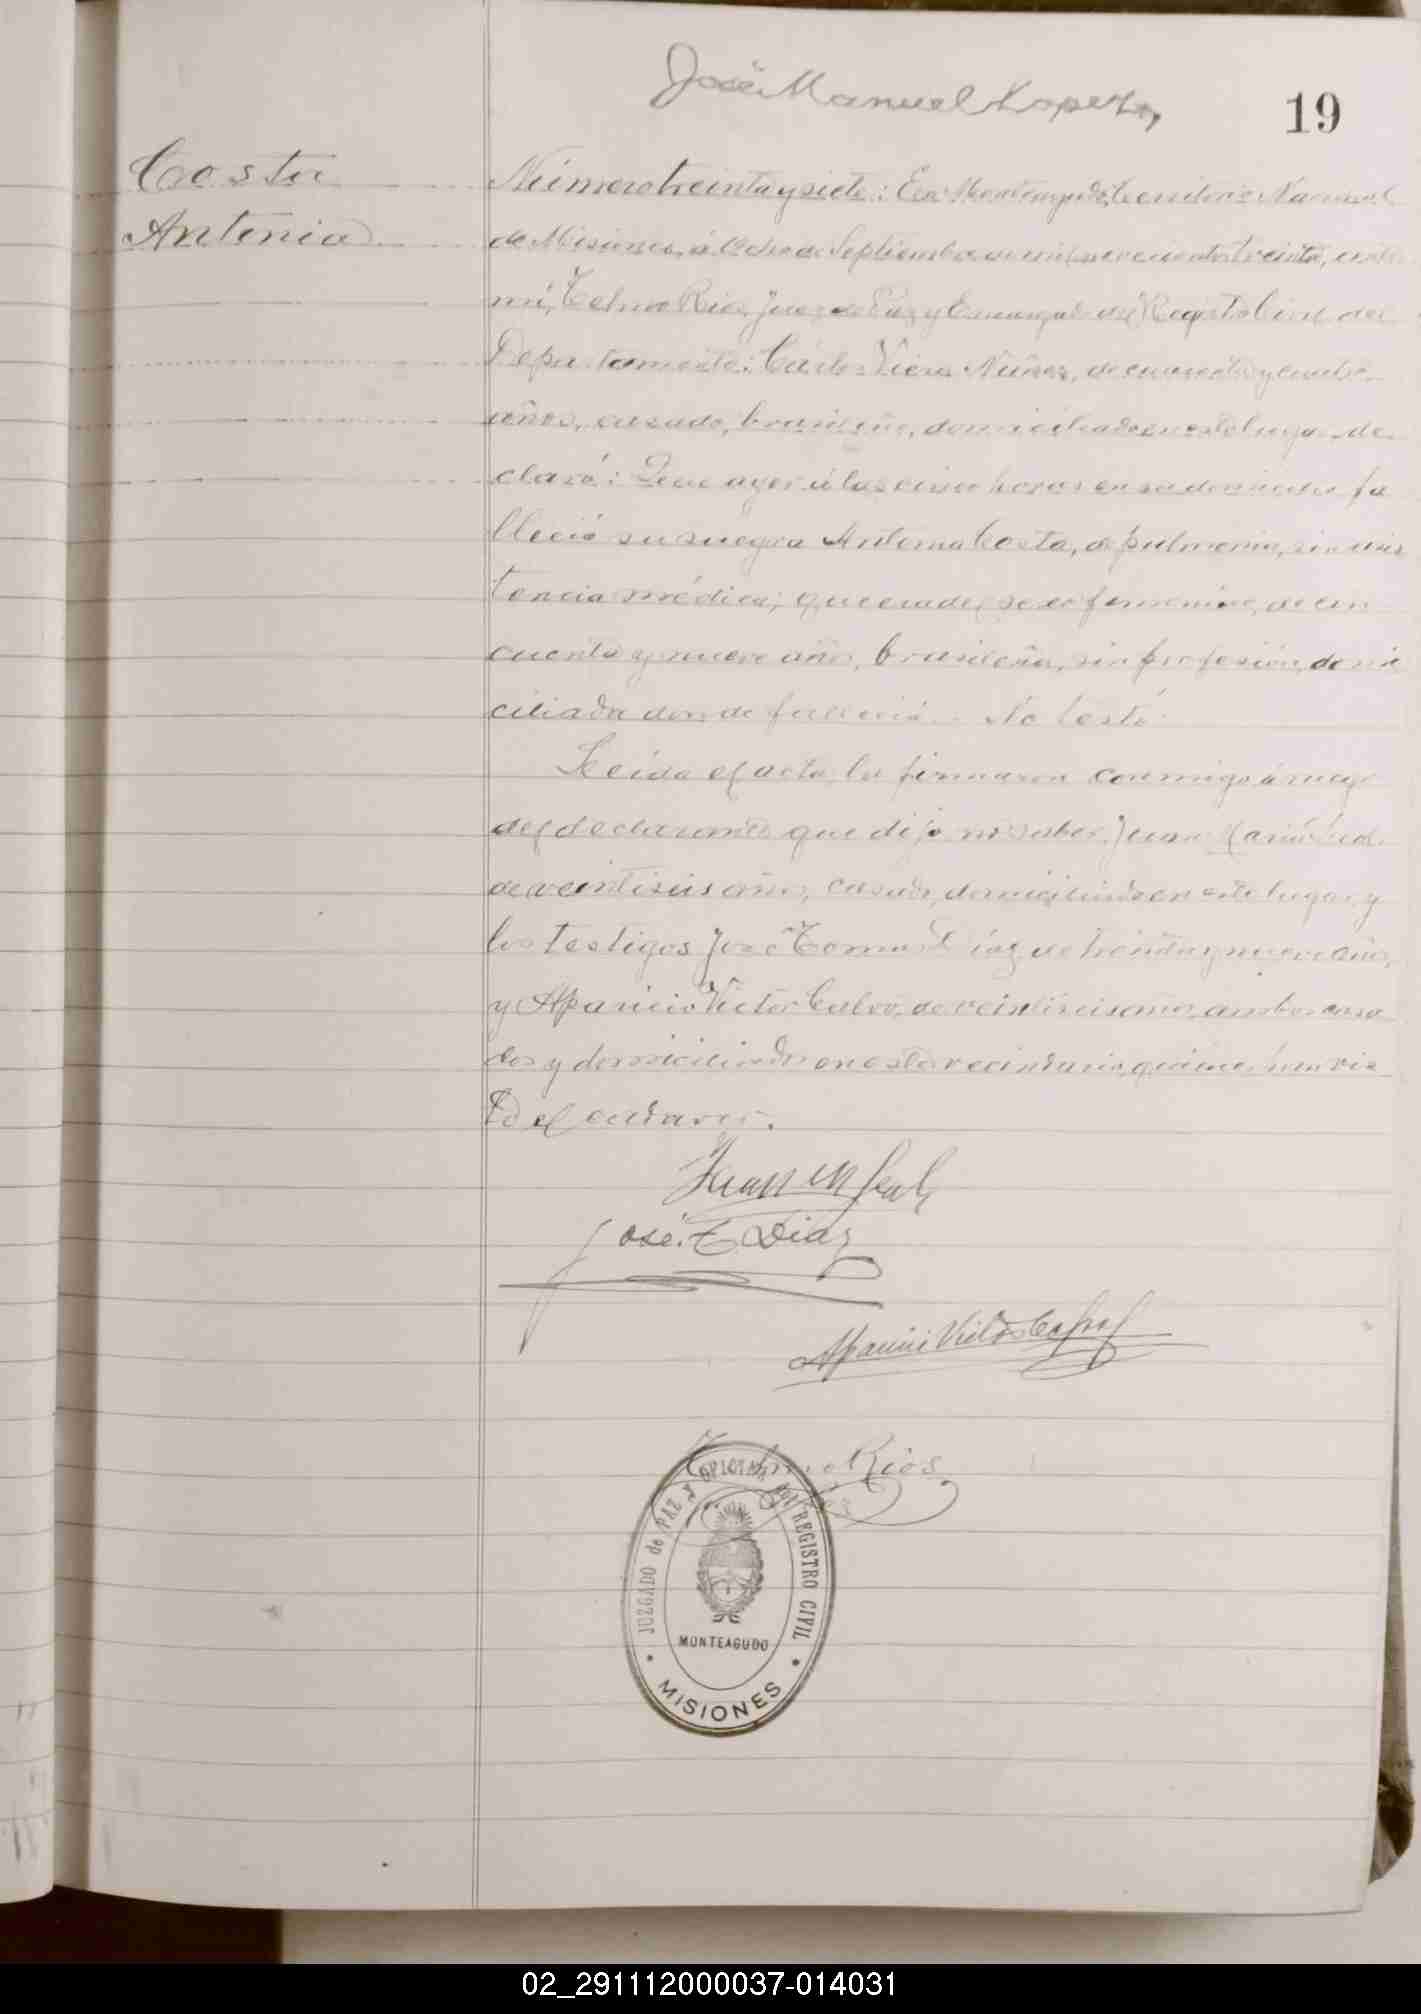 José Manuel Lopez,
19
Costa
Antonia
Número treinta y siete: En Monteagudo, Territorio Nacional
de Misiones, á de Septiembre de mil novecientos treinta, ante
mí, Telmo Rios, Juez de Paz y Encargado del Registro Civil del
Departamento: Carlos Viera Núñez, de cuarenta y
años, casado, brasileño, domiciliado en este lugar de
claró: Que ayer á las cinco horas en su domicilio fa
lleció su suegra Antonia Costa, de pulmonia, sin asis
tencia médica; que era del sexo femenino, de cin
cuenta y nueve años, brasileña, sin profesión, domi
ciliada donde falleció. No testó.
Leída el acta la firmaron conmigo á ruego
del declarante que dijo no saber, Juan
de veintiseis años, casado, domiciliado en este lugar, y
los testigos José Tomas Diaz de treinta y nueve años,
y Aparicio Victor de veintiseis años, ambos casa
dos y domiciliados en este vecindario, quienes han vis
to el cadaver.
Juan M
José. T Diaz
Aparici Victor
Telmo Rios
Juez
JUZGADO de PAZ y OFICINA del REGISTRO CIVIL
MONTEAGUDO
MISIONES
02_291112000037-014031